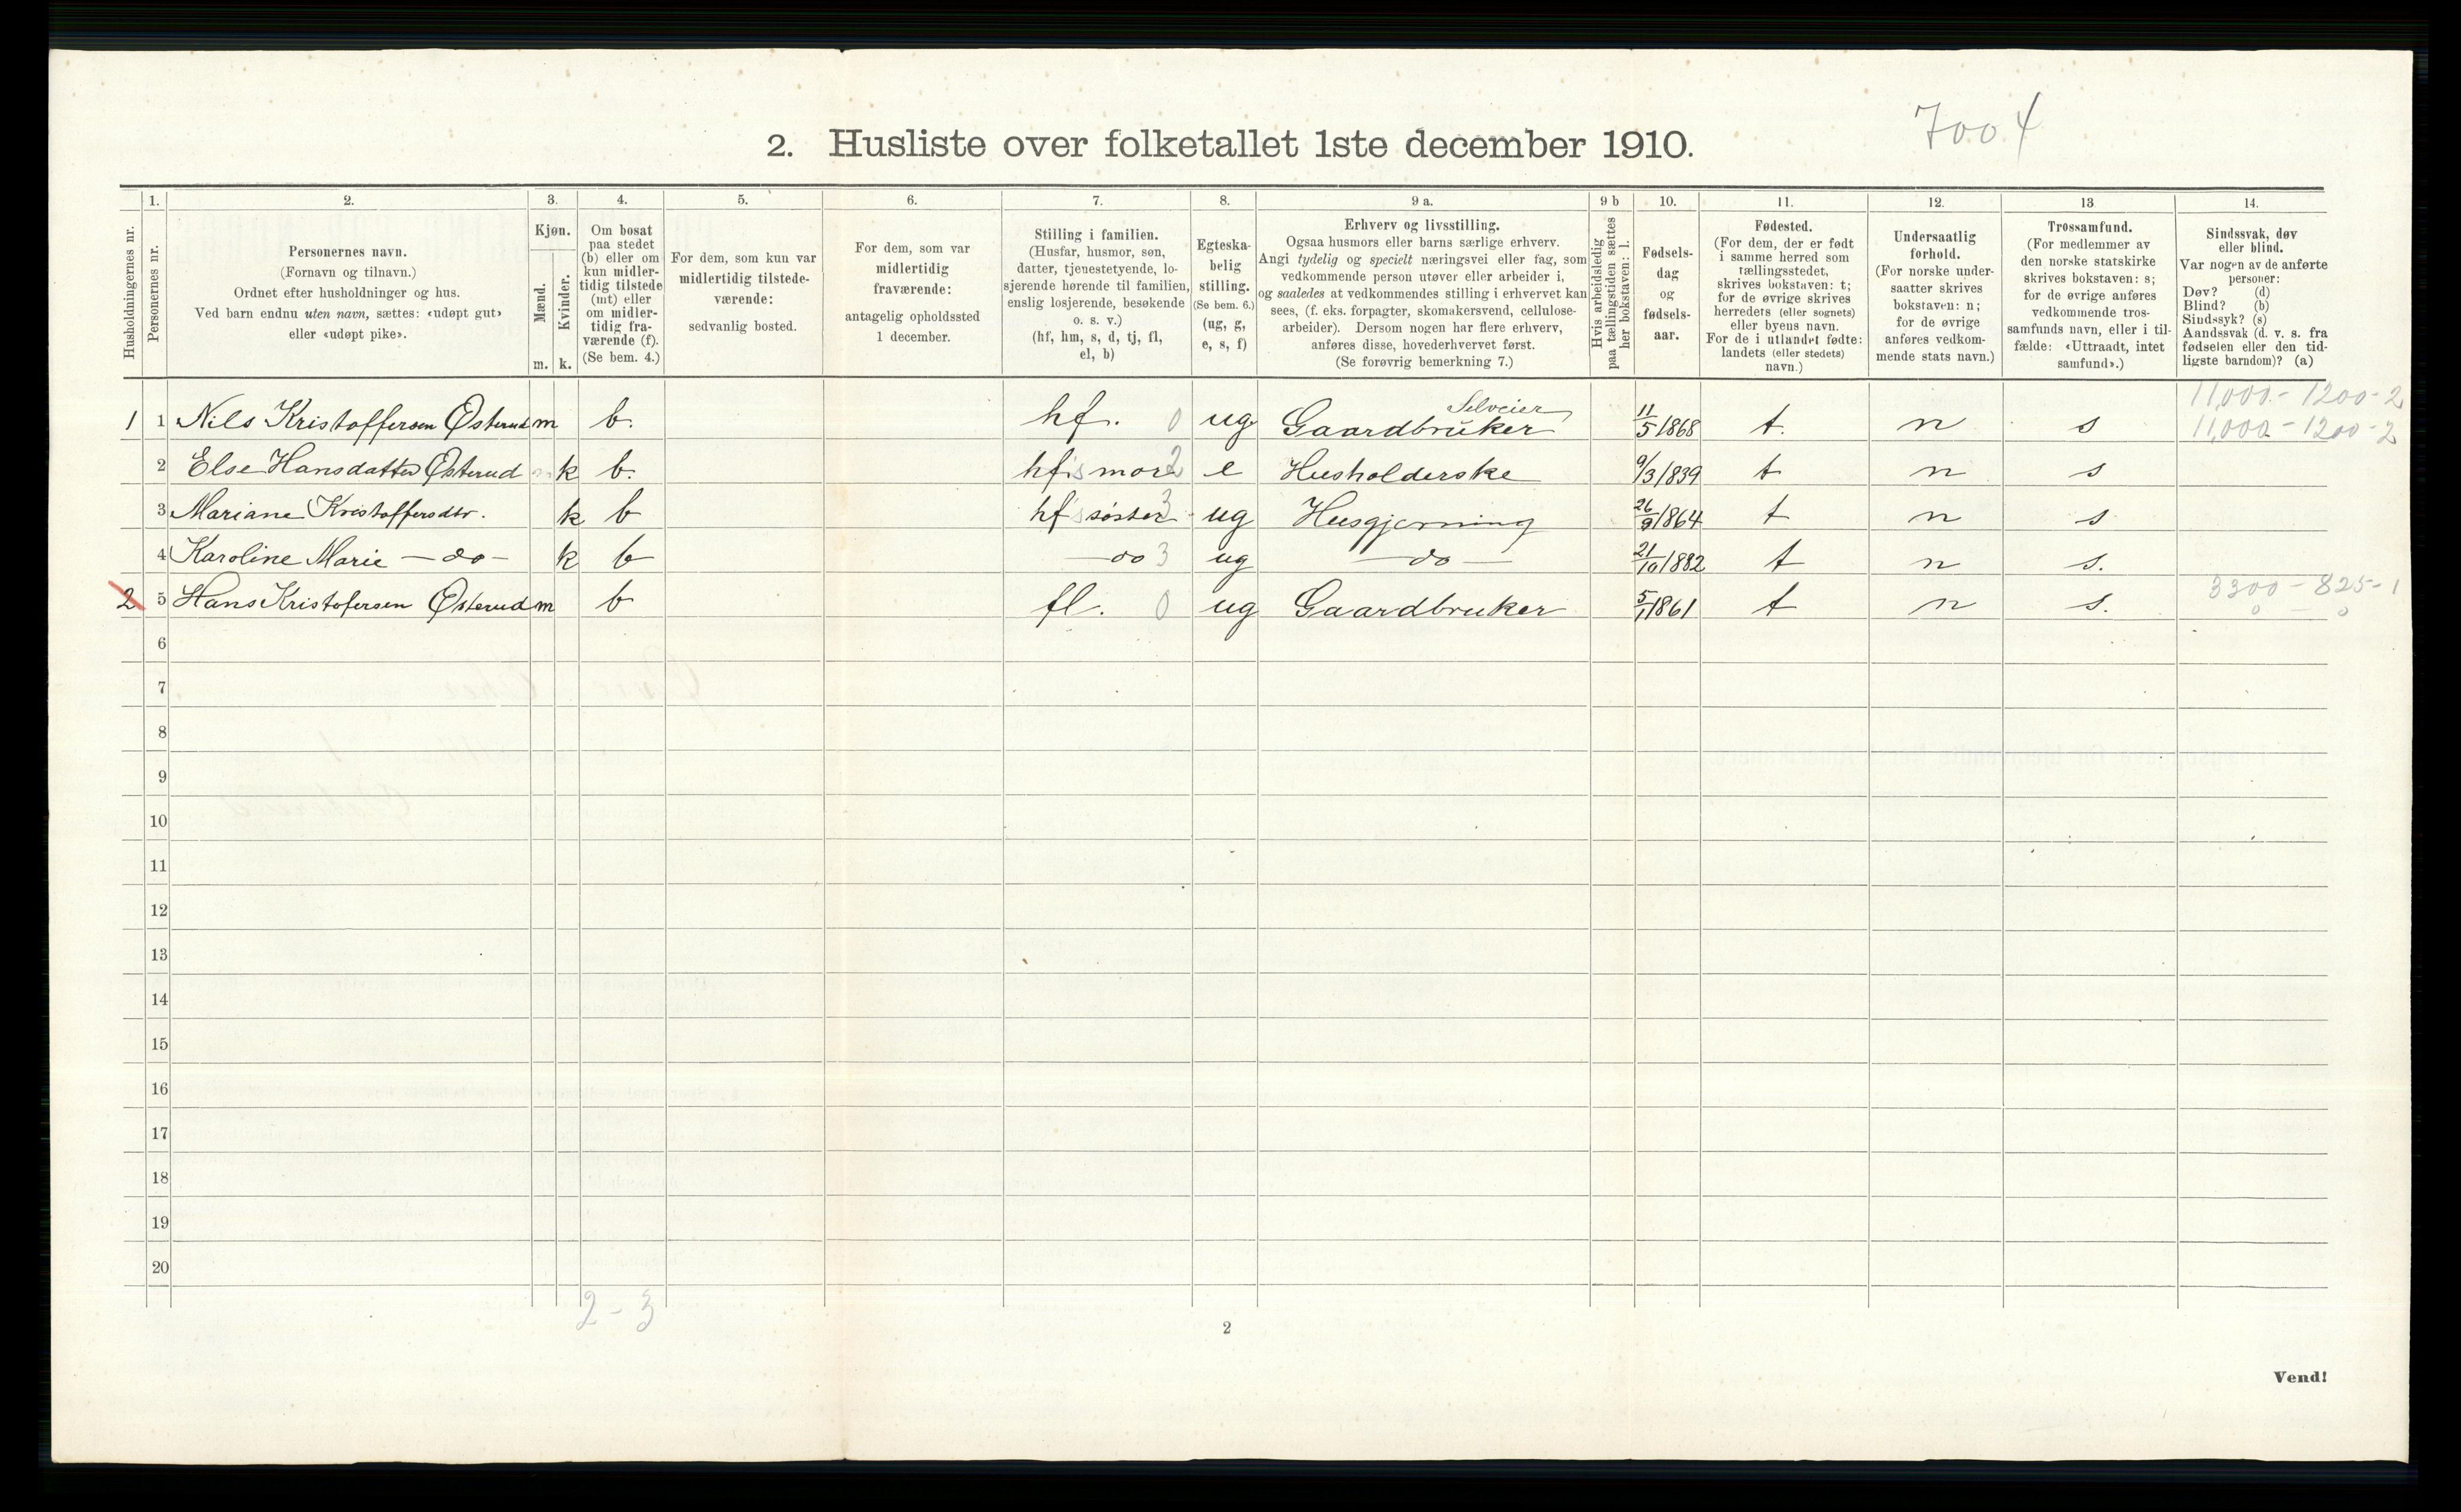 7004
2. Husliste over folketallet 1ste december 1910.
Husholdningernes nr.
1.
Personernes nr.
2.
Personernes navn.
(Fornavn og tilnavn.)
Ordnet efter husholdninger og hus.
Ved barn endnu uten navn, sættes: «udøpt gut»
eller «udøpt pike».
3.
Kjøn.
Mænd.
m.
Kvinder.
k.
4.
Om bosat
paa stedet
(b) eller om
kun midler-
tidig tilstede
(mt) eller
om midler-
tidig fra-
værende (f).
(Se bem. 4.)
5.
For dem, som kun var
midlertidig tilstede-
værende:
sedvanlig bosted.
6.
For dem, som var
midlertidig
fraværende:
antagelig opholdssted
1 december.
7.
Stilling i familien.
(Husfar, husmor, søn,
datter, tjenestetyende, lo-
sjerende hørende til familien,
enslig losjerende, besøkende
o. s. v.)
(hf, hm, s, d, tj, fl,
el, b)
8.
Egteska-
belig
stilling.
(Se bem. 6.)
(ug, g,
e, s, f)
9 a.
Erhverv og livsstilling.
Ogsaa husmors eller barns særlige erhverv.
Angi tydelig og specielt næringsvei eller fag, som
vedkommende person utøver eller arbeider i,
og saaledes at vedkommendes stilling i erhvervet kan
sees, (f. eks. forpagter, skomakersvend, cellulose-
arbeider). Dersom nogen har flere erhverv,
anføres disse, hovederhvervet først.
(Se forøvrig bemerkning 7.)
9 b
Hvis arbeidsledig
paa tællingstiden sættes
her bokstaven: l.
10.
Fødsels-
dag
og
fødsels-
aar.
11.
Fødested.
(For dem, der er født
i samme herred som
tællingsstedet,
skrives bokstaven: t;
for de øvrige skrives
herredets (eller sognets)
eller byens navn.
For de i utlandet fødte:
landets (eller stedets)
navn.)
12.
Undersaatlig
forhold.
(For norske under-
saatter skrives
bokstaven: n;
for de øvrige
anføres vedkom-
mende stats navn.)
13
Trossamfund.
(For medlemmer av
den norske statskirke
skrives bokstaven: s;
for de øvrige anføres
vedkommende tros-
samfunds navn, eller i til-
fælde: «Uttraadt, intet
samfund».)
14.
Sindssvak, døv
eller blind.
Var nogen av de anførte
personer:
Døv? (d)
Blind? (b)
Sindssyk? (s)
Aandssvak (d. v. s. fra
fødselen eller den tid-
ligste barndom)? (a)
11,000 - 1200 - 2
1 1 Nils Kristoffersen Østerud m b. hf. 0 ug Selveier Gaardbruker 11/5 1868 t. n s 11,000 - 1200 - 2
2 Else Hansdatter Østerud k b. hf.s mor 2 e Husholderske 9/3 1839 t n s
3 Mariane Kristoffersdtr. k b hf s søster 3 ug Husgjerning 26/9 1864 t n s
4 Karoline Marie — do — k b — do 3 ug — do — 21/10 1882 t n s.
2 5 Hans Kristofersen Østerud m b fl. 0 ug Gaardbruker 5/1 1861 t n s. 3300 - 825 - 1
0 — 0
6
7
8
9
10
11
12
13
14
15
16
17
18
19
20
2 - 3
2
Vend!